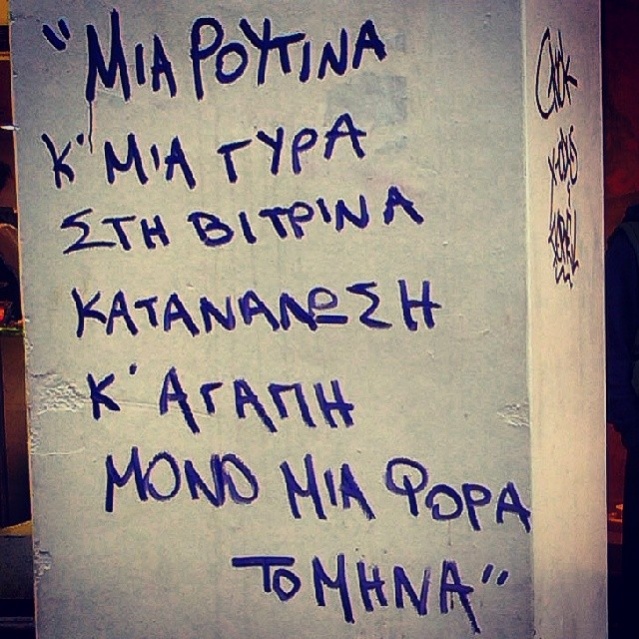 "ΜΙΑ ΡΟΥΤΙΝΑ
Κ' ΜΙΑ ΓΥΡΑ
ΣΤΗ ΒΙΤΡΙΝΑ
ΚΑΤΑΝΑΛΩΣΗ
Κ' ΑΓΑΠΗ
ΜΟΝΟ ΜΙΑ ΦΟΡΑ
ΤΟ ΜΗΝΑ"